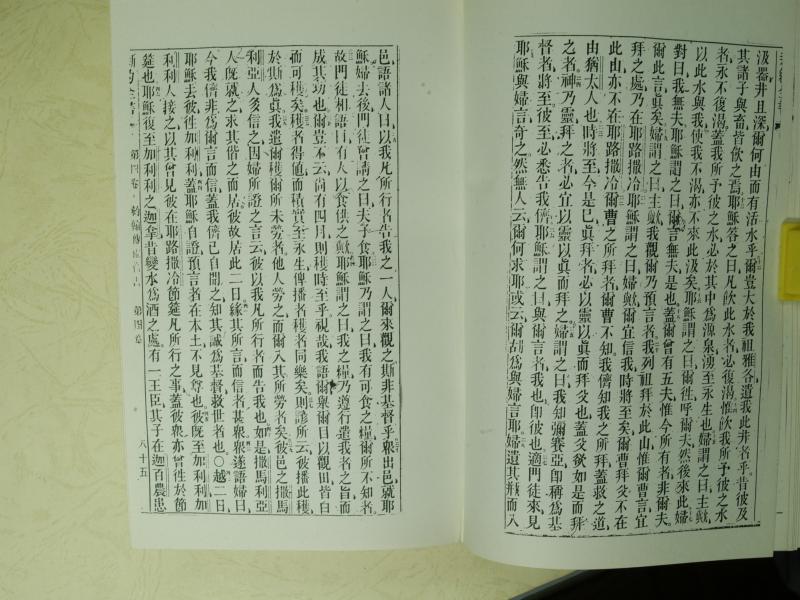 汲器井且深爾何由而有活水乎爾豈大於我祖雅各遺我此井者乎昔彼及
其諸子與畜皆飲之焉耶穌答之曰凡飲此水者必復渴惟飲我所予彼之水
者永不復渴蓋我所予彼之水必於其中為源泉湧至永生也婦謂之曰主歟
以此水與我使我不渴亦不來此汲矣耶穌謂之曰爾往呼爾夫然後來此婦
對曰我無夫耶穌謂之曰爾言無夫是也蓋爾曾有五夫惟今所有者非爾夫
爾此言眞矣婦謂之曰主歟我觀爾乃預言者我列祖拜於此山惟爾曹言宜
拜之處乃在耶路撒冷耶穌謂之曰婦歟爾信我時將至矣爾曹拜父不在
此山亦不在耶路撒冷爾曹之所拜者爾曹不知我儕知我之所拜蓋救之道
由猶太人也時將至今是已眞拜者必以靈以眞而拜父也蓋父欲如是而拜
之者神乃靈拜之者必宜以靈以眞而拜之婦謂之曰我知彌賽亞即稱為基
督者將至彼至必悉告我儕耶穌謂之曰與爾言者我也即彼也適門徒來見
耶穌與婦言奇之然無人云爾何求耶或云爾胡為與婦言耶婦遺其瓶而入
邑語諸人曰以我凡所行者告我之一人爾來觀之斯非基督乎眾出邑就耶
穌婦去後門徒曾請之曰夫子食耶穌乃謂之曰我有可食之糧爾所不知者
故門徒相語曰有人以食供之歟耶穌謂之曰我之糧乃遵行遣我者之旨而
成其功也爾豈不云尚有四月則穫時至乎視哉我語爾舉爾目以觀田皆白
而可穫矣穫者得値而積實至永生俾播者穫者同樂矣則諺所云彼播此穫
於斯為眞我遣爾穫爾所未勞者他人勞之而爾入其所勞者矣彼邑之撒馬
利亞人多信之因婦所證之言云彼以我凡所行者而告我也如是撒馬利亞
人既就之求其偕之而居彼故居此二日緣其所言而信者甚眾眾遂語婦曰
今我儕非為爾言而信蓋我儕已自聞之知其誠為基督救世者也○越二日
耶穌去彼往加利利蓋耶穌自證預言者在本土不見尊也彼既至加利利加
利利人接之以其曾見彼在耶路撒冷節筵凡所行之事蓋彼眾亦曾往於節
筵也耶穌復至加利利之迦拿昔變水為酒之處有一王臣其子在迦百農患
第四卷 約翰傳福音書 第四章 八十五